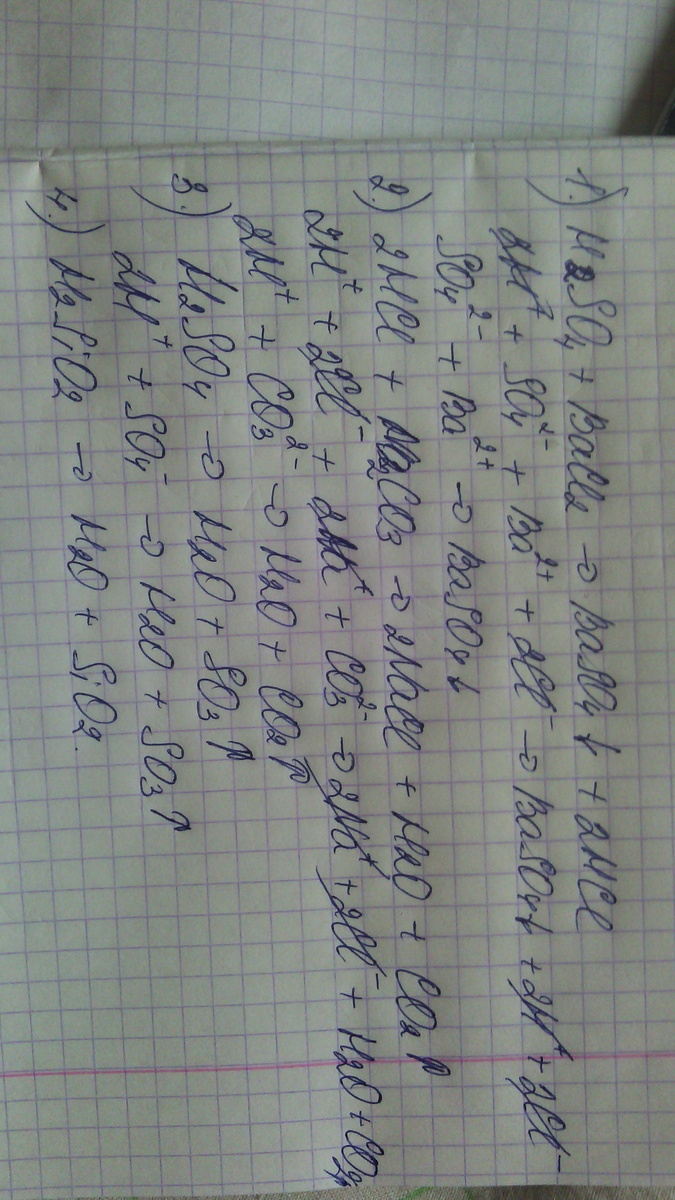 1.) H2SO4 + BaCl2 → BaSO4↓ + 2HCl
2H⁺ + SO4²⁻ + Ba²⁺ + 2Cl⁻ → BaSO4↓ + 2H⁺ + 2Cl⁻
SO4²⁻ + Ba²⁺ → BaSO4↓
2.) 2HCl + Na2CO3 → 2NaCl + H2O + CO2↑
2H⁺ + 2Cl⁻ + 2Na⁺ + CO3²⁻ → 2Na⁺ + 2Cl⁻ + H2O + CO2↑
2H⁺ + CO3²⁻ → H2O + CO2↑
3.) H2SO4 → H2O + SO3↑
2H⁺ + SO4⁻ → H2O + SO3↑
4.) H2SiO2 → H2O + SiO2.